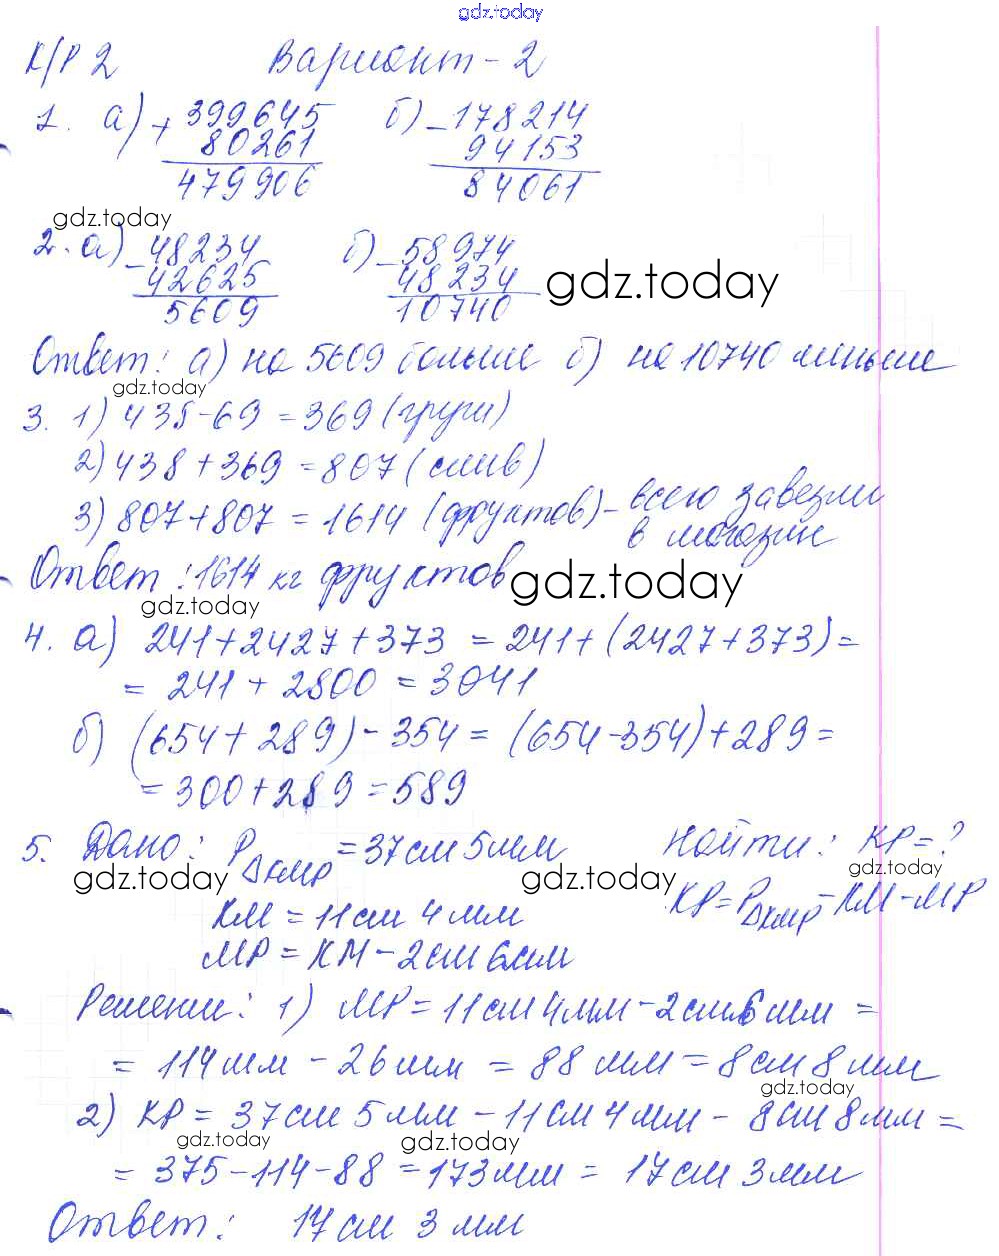 gdz.today
К/Р 2 Вариант - 2
1. а) + 399645 б) - 178214
80261 94153
479906 84061
gdz.today
2. а) - 48234 б) - 58974
42625 48234
5609 10740
gdz.today
Ответ: а) на 5609 больше б) на 10740 меньше
gdz.today
3. 1) 435-69 = 369 (груши)
2) 438 + 369 = 807 (слив)
3) 807+807 = 1614 (фруктов) - всего завезли
в магазин
Ответ: 1614 кг фруктов
gdz.today
gdz.today
4. а) 241+2427+373 = 241+(2427+373)=
= 241 + 2800 = 3041
б) (654+289)-354 = (654-354)+289=
= 300+289=589
5. Дано: P△KMP = 37см 5мм Найти: KP=?
gdz.today gdz.today gdz.today
KM = 11см 4мм KP=P△KMP-KM-MP
MP = KM - 2см 6мм
Решении: 1) MP = 11см 4мм - 2см 6мм =
= 114мм - 26мм = 88 мм = 8см 8мм
gdz.today
2) KP = 37см 5мм - 11см 4мм - 8см 8мм =
gdz.today gdz.today
= 375-114-88 = 173мм = 17см 3мм
Ответ: 17см 3мм